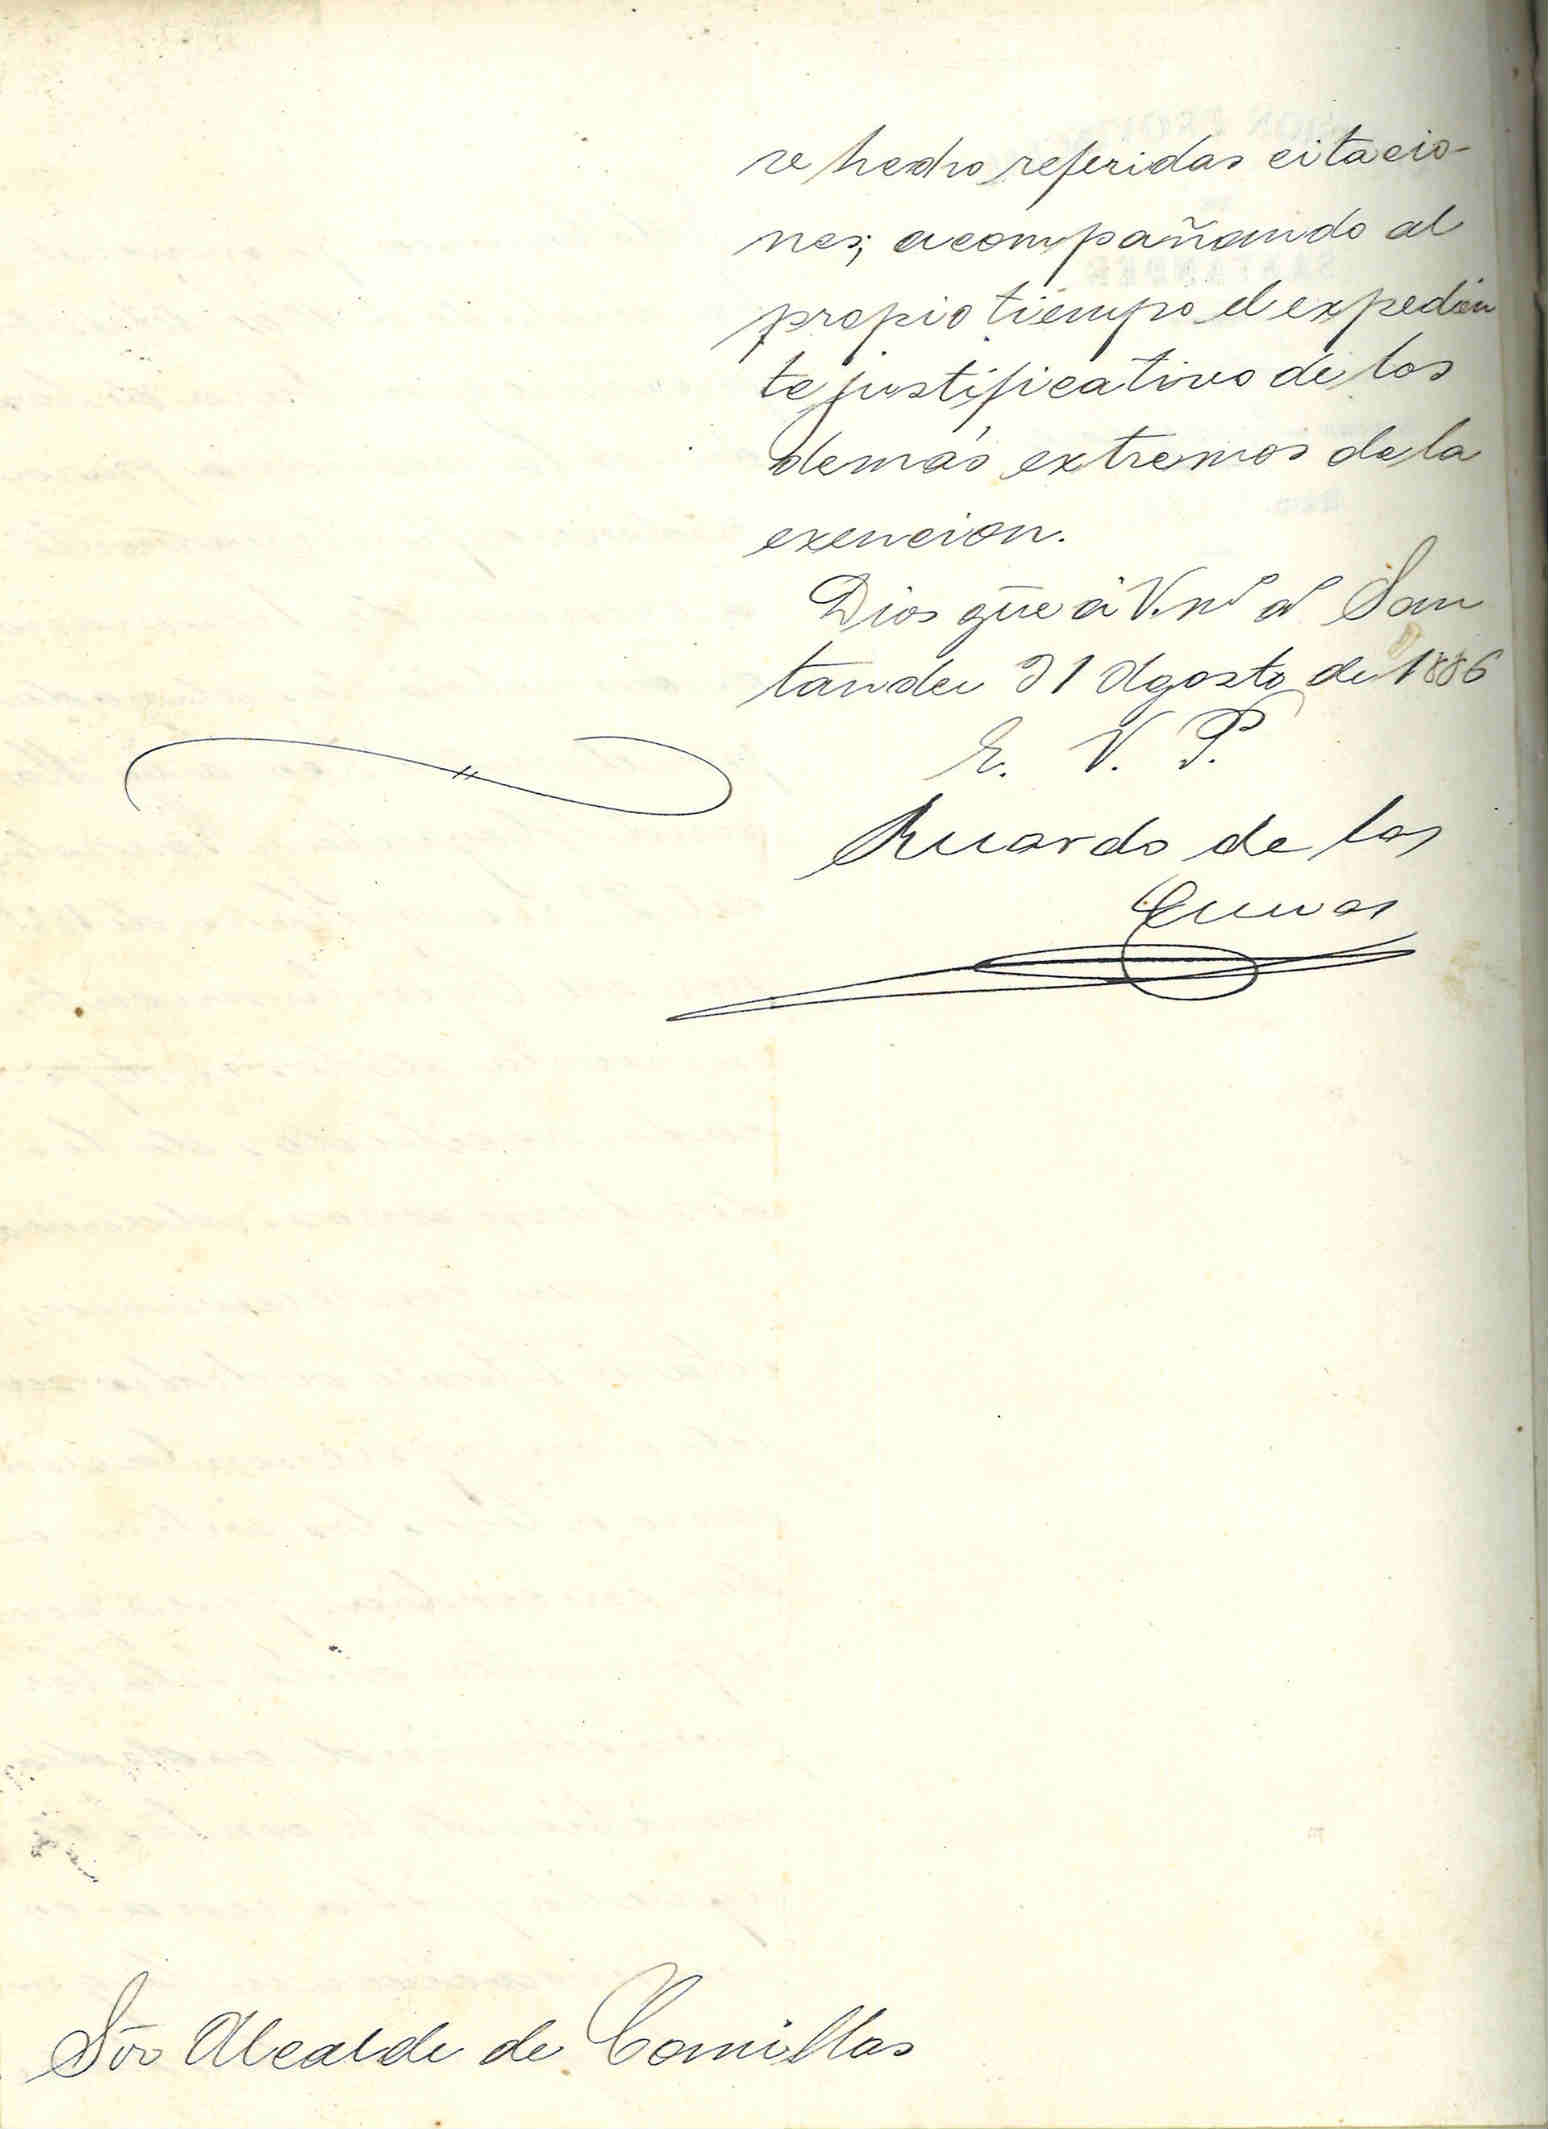 se hecho referidas citacio-
nes; acompañando al
propio tiempo el expedien
te justificativo de los
demás extremos de la
exencion.
Dios güe á V. ms as San
tander 31 Agosto de 1886
E. V. P.
Ricardo de las
Cuevas
Sor Alcalde de Comillas